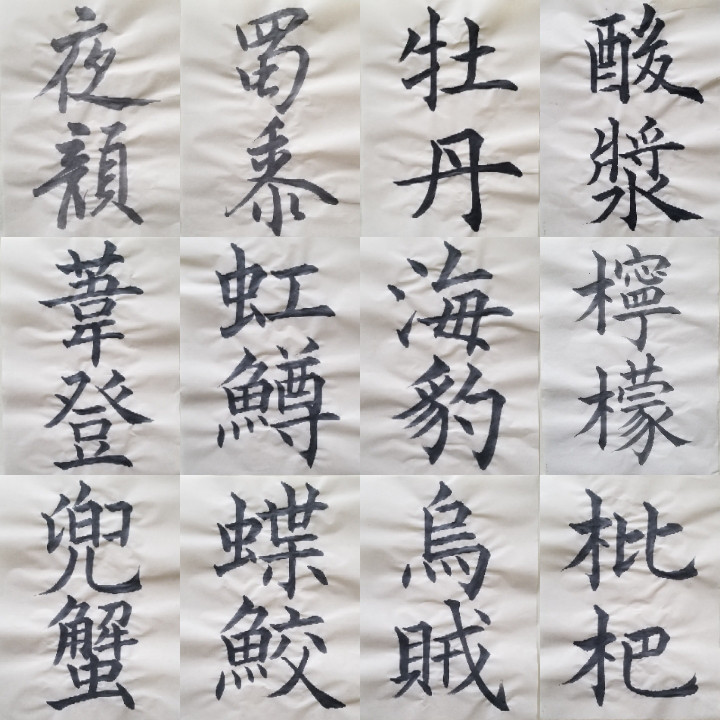 夜顔
蜀黍
牡丹
酸漿
葦登
虹鱒
海豹
檸檬
兜蟹
蝶鮫
烏賊
枇杷